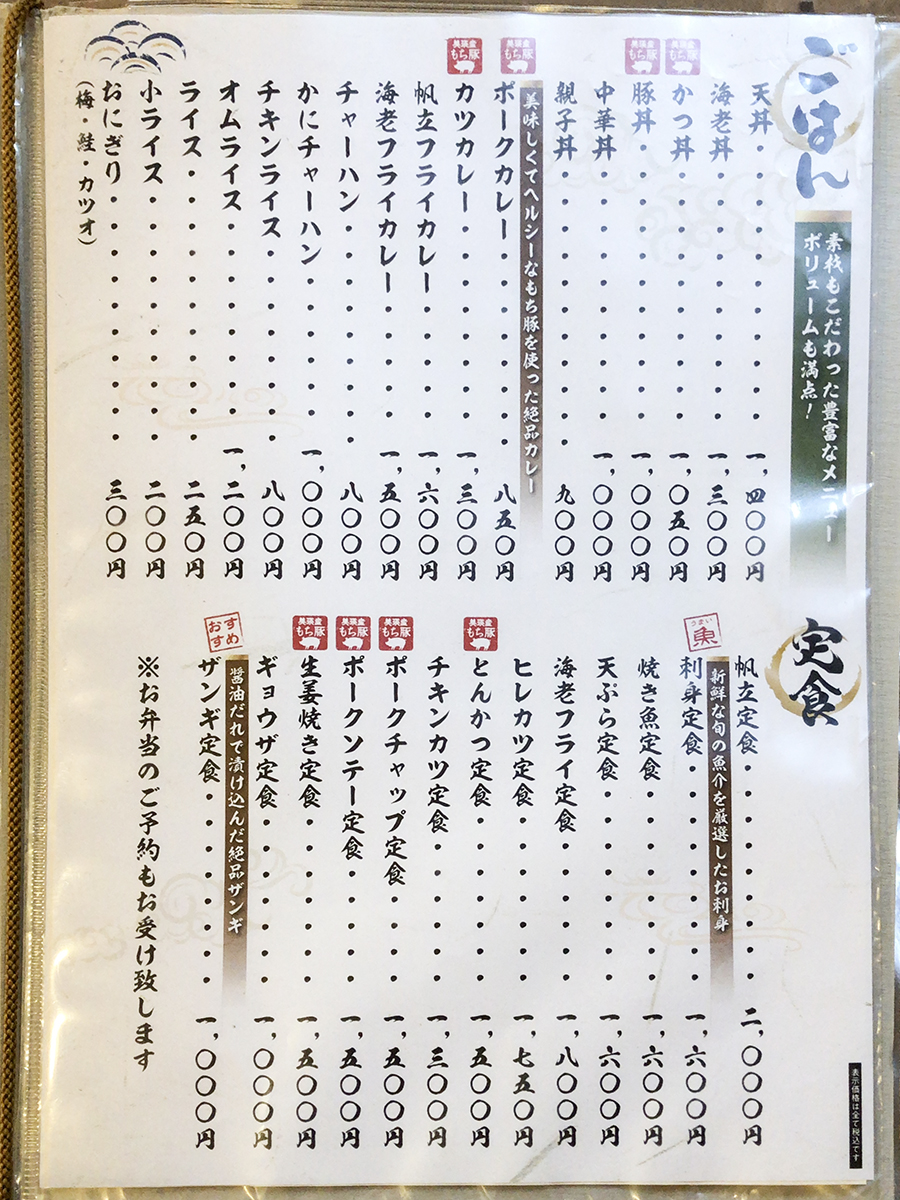 ごはん
素材もこだわった豊富なメニュー
ボリュームも満点！
天丼・・・・・・・・・・・一,四〇〇円
海老丼・・・・・・・・・・一,三〇〇円
美瑛産
もち豚
かつ丼・・・・・・・・・・一,〇五〇円
美瑛産
もち豚
豚丼・・・・・・・・・・・一,〇〇〇円
中華丼・・・・・・・・・・一,〇〇〇円
親子丼・・・・・・・・・・九〇〇円
美味しくてヘルシーなもち豚を使った絶品カレー
美瑛産
もち豚
ポークカレー・・・・・・・・八五〇円
美瑛産
もち豚
カツカレー・・・・・・・・一,三〇〇円
帆立フライカレー・・・・・・一,六〇〇円
海老フライカレー・・・・・・一,五〇〇円
チャーハン・・・・・・・・・八〇〇円
かにチャーハン・・・・・・・一,〇〇〇円
チキンライス・・・・・・・・八〇〇円
オムライス・・・・・・・・・一,二〇〇円
ライス・・・・・・・・・・・二五〇円
小ライス・・・・・・・・・・二〇〇円
おにぎり・・・・・・・・・・三〇〇円
（梅・鮭・カツオ）
定食
帆立定食・・・・・・・・・二,〇〇〇円
新鮮な旬の魚介を厳選したお刺身
うまい
魚
刺身定食・・・・・・・・・一,六〇〇円
焼き魚定食・・・・・・・・一,六〇〇円
天ぷら定食・・・・・・・・一,六〇〇円
海老フライ定食・・・・・・一,八〇〇円
ヒレカツ定食・・・・・・・一,七五〇円
美瑛産
もち豚
とんかつ定食・・・・・・・一,五〇〇円
チキンカツ定食・・・・・・一,三〇〇円
美瑛産
もち豚
ポークチャップ定食・・・・一,五〇〇円
美瑛産
もち豚
ポークソテー定食・・・・・一,五〇〇円
美瑛産
もち豚
生姜焼き定食・・・・・・・一,五〇〇円
ギョウザ定食・・・・・・・一,〇〇〇円
醤油だれで漬け込んだ絶品ザンギ
おすすめ
ザンギ定食・・・・・・・・一,〇〇〇円
※お弁当のご予約もお受け致します
表示価格は全て税込です